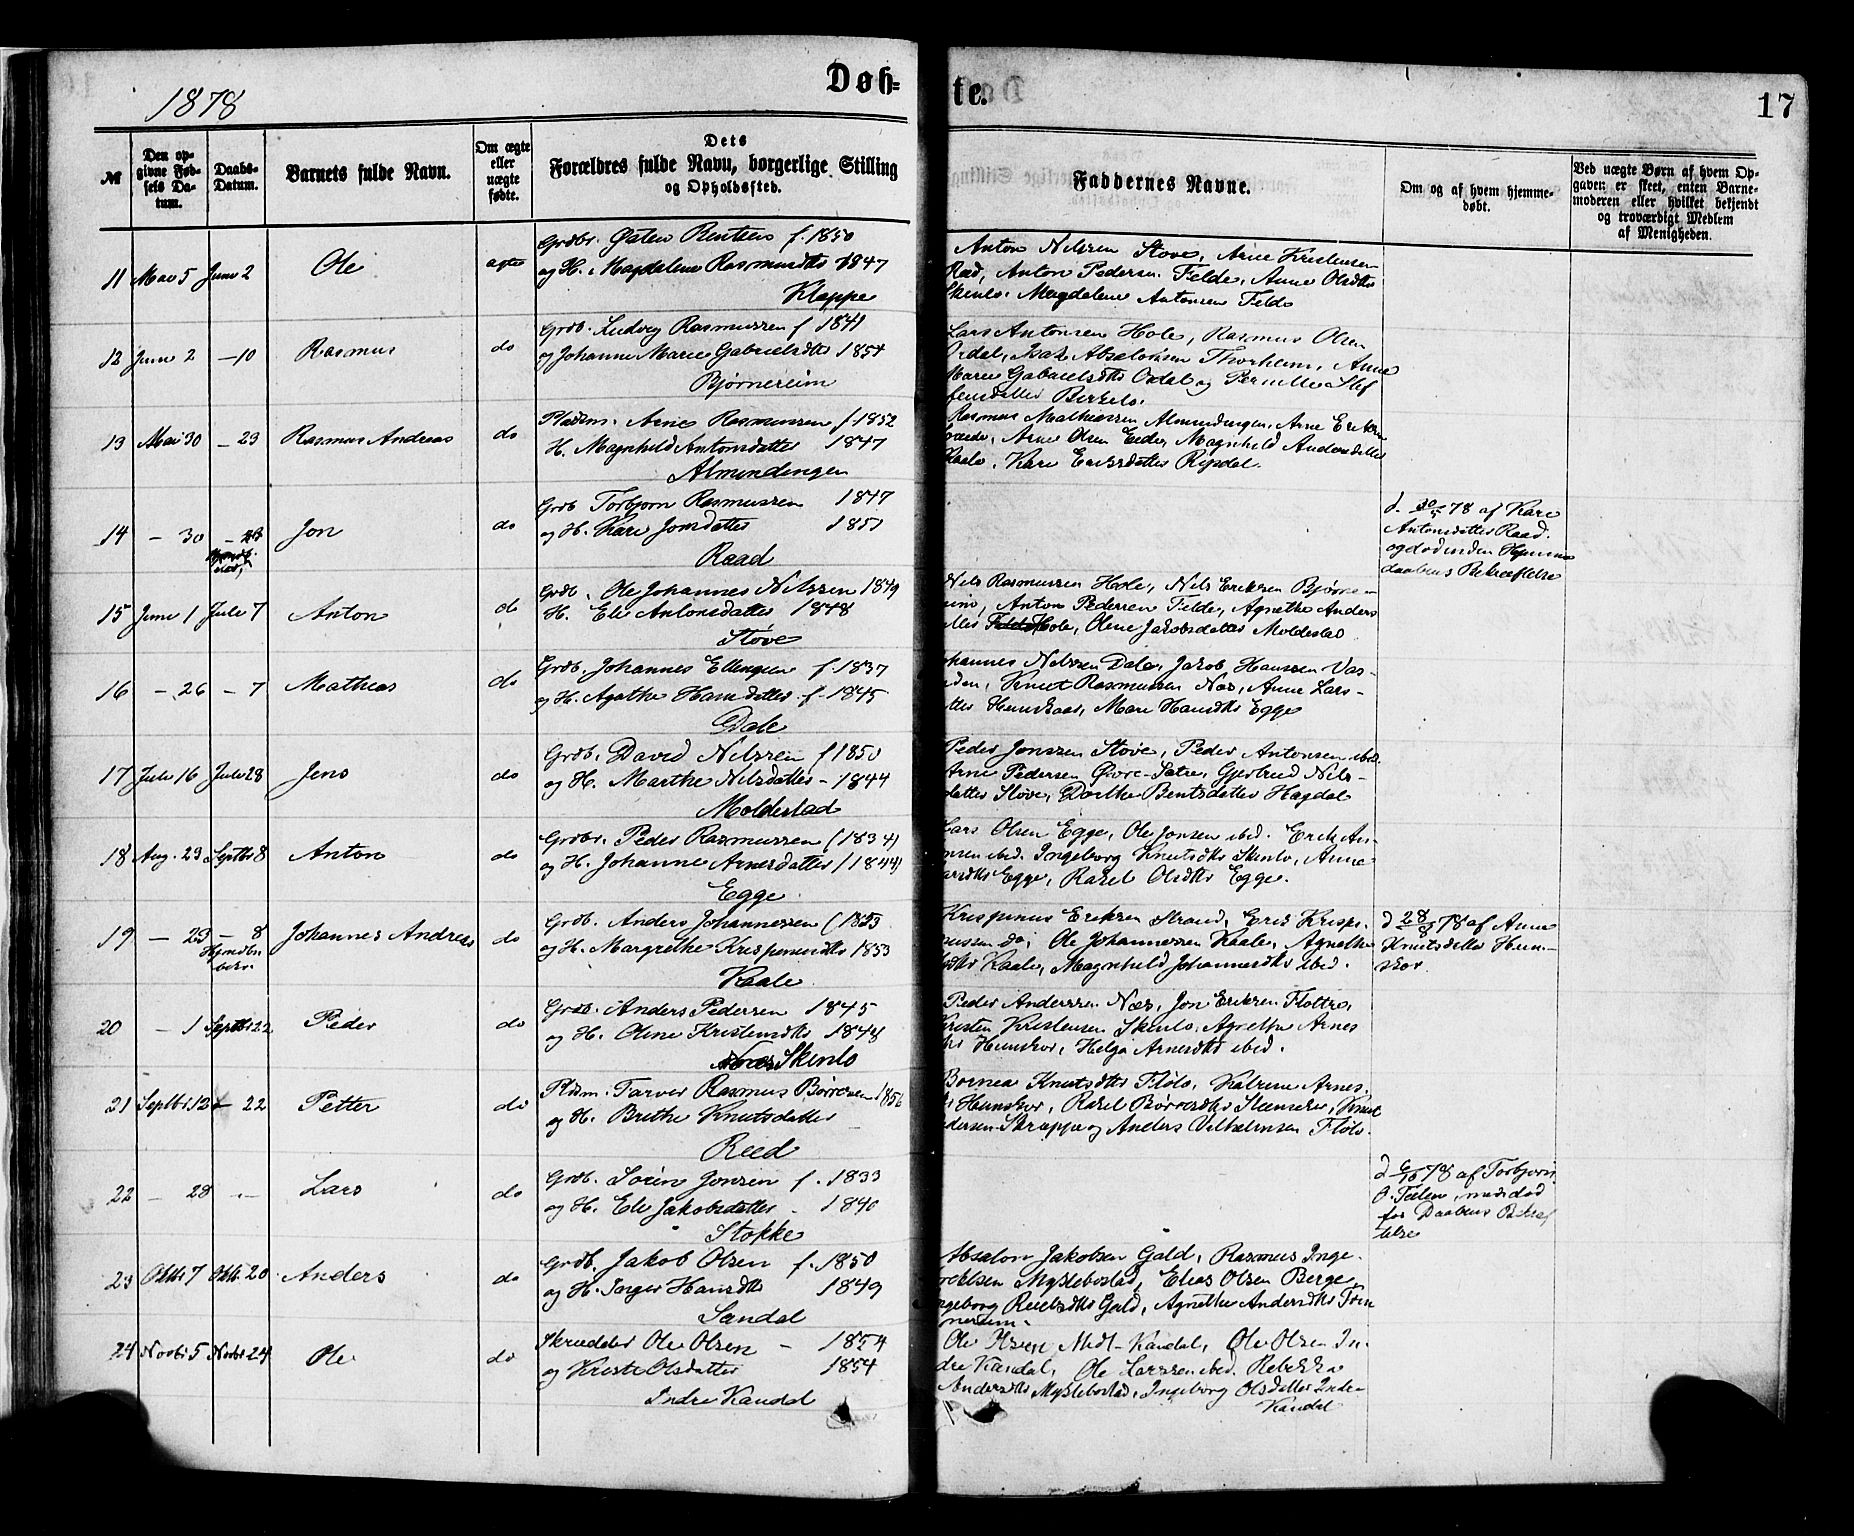 1878
Døb-
te.
17
№
Den op-
givne Fød-
sels Da-
tum.
Daabs-
Datum.
Barnets fulde Navn.
Om ægte
eller
uægte
fødte.
Dets
Forældres fulde Navn, borgerlige Stilling
og Opholdssted.
Faddernes Navne.
Om og af hvem hjemme-
døbt.
Ved uægte Børn af hvem Op-
gaven er skeet, enten Barne-
moderen eller hvilket bekjendt
og troværdigt Medlem
af Menigheden.
11 Mai 5 Juni 2 Ole ægte
Grdbr. Østen Bentsen f. 1850
og H. Magdelene Rasmusdtr 1847
Kloppe
Anton Nilssen Støve, Arne Kristensen
Rød, Anton Pedersen Felde, Anne Olsdtr
Skinlo, Magdelene Antonsen Felde
12 Juni 2 – 10 Rasmus do
Grdb. Ludvig Rasmussen f 1841
og Johanne Marie Gabrielsdtr 1854
Bjørnereim
Lars Antonsen Hole, Rasmus Olsen
Ordal, Isak Absalonsen Thorheim, Anne
Marie Gabrielsdtr Ordal og Pernille Stef
fensdatter Birkelo.
13 Mai 30 – 23 Rasmus Andreas do
Pladsm. Arne Rasmussen f 1852
H. Magnhild Antonsdatter 1847
Almendingen
Rasmus Mathiassen Almendingen, Arne Eriksen
Arne Olsen Eide, Magnhild Andersdatter
Kaale, Kari Eriksdatter Ripdal.
14 – 30 – 23 Jon do
Grdb Torbjørn Rasmussen 1847
og H. Kari Jonsdatter 1851
Raad
d. 30/5 78 af Kari
Antonsdatter Raad.
og død inden Hjemme
daabens Bekræftelse
15 Juni 1 Juli 7 Anton do
Grdb. Ole Johannes Nilssen 1849
H. Eli Antonsdatter 1848
Støve
Nils Rasmussen Hole, Nils Eriksen Bjørne-
reim, Anton Pedersen Felde, Agnethe Anders
datter Hole, Oline Jakobsdatter Moldestad
16 – 26 – 7 Mathias do
Grdb. Johannes Ellingsen f. 1837
og H. Agathe Hansdatter f. 1845
Dale
Johannes Nilssen Dale, Jakob Hanssen Vas-
enden, Knut Rasmussen Næs, Anne Lars-
datter Hunskaar, Mari Hansdtr Egge
17 Juli 16 Juli 28 Jens do
Grdb. David Nilssen f 1850
og H. Marthe Nilsdatter – 1844
Moldestad
Peder Jonssen Støve, Peder Antonsen ibid.
Arne Pedersen Øvre-Sætre, Gjertrud Nils-
datter Støve, Dorthe Bentsdatter Hagdal
18 Aug. 23 Septbr 8 Anton do
Grdbr. Peder Rasmussen (1834)
og H. Johanne Arnesdatter (1844)
Egge
Lars Olsen Egge, Ole Jonsen ibid. Erik An-
tonsen ibid. Ingeborg Knutsdtr Skinlo, Anne
Larsdtr Egge, Rakel Olsdtr Egge.
19 – 23 – 8 Johannes Andreas do
Grdb. Anders Johannessen (1853
og H. Margrethe Krispinusdtr 1853
Kaale
Krispinus Eriksen Strand, Erik Krispi-
nussen do, Ole Johannessen Kaale, Agnethe
Kaale, Magnhild Johannesdtr ibid.
d 28/8 78 af Anne
Knutsdatter Hun-
skor
20 – 1 Septbr 22 Peder do
Grdb. Anders Pedersen 1845
og H. Oline Kristensdtr 1848
Skinlo
Peder Anderssen Næs, Jon Eriksen Flotre,
Kristen Kristensen Skinlo, Agnethe Arnes
dtr Hunskor, Helga Arnesdtr ibid.
21 Septbr 12 – 22 Petter do
Pldsm. Tarver Rasmus Børresen 1856
og H. Brithe Knutsdatter
Reed
Bornea Knutsdtr Flølo, Katrine Arnes
Hunskor, Rakel Børresdtr Steinsæter, Knut
Pedersen Skrøppa og Anders Vilhelmsen Flølo.
22 – 28 – Lars do
Grdb. Søren Jonsen f. 1833
og H. Eli Jakobsdatter – 1840
Stokke
d 6/10 78 af Torbjørn
O. Felen, men død
før Daabens Bekræf
telse
23 Oktbr 7 Oktb. 20 Anders do
Grdb. Jakob Olsen f. 1850
og H. Inger Hansdtr 1849
Sandal
Absalon Jakobsen Gald, Rasmus Inge-
Myklebostad, Elias Olsen Berge
Ingeborg Gald, Agnethe Andersdtr
24 Novbr 5 Novbr 24 Ole do
Skrædder Ole Olsen – 1854
og Kristi Olsdatter 1854
Indre Kandal
Ole Olsen Midt-Kandal, Ole Olsen In-
dre Kandal, Ole Larssen ibid. Rebekka
Andersdtr Myklebostad, Ingeborg Olsdatter Indre
Kandal